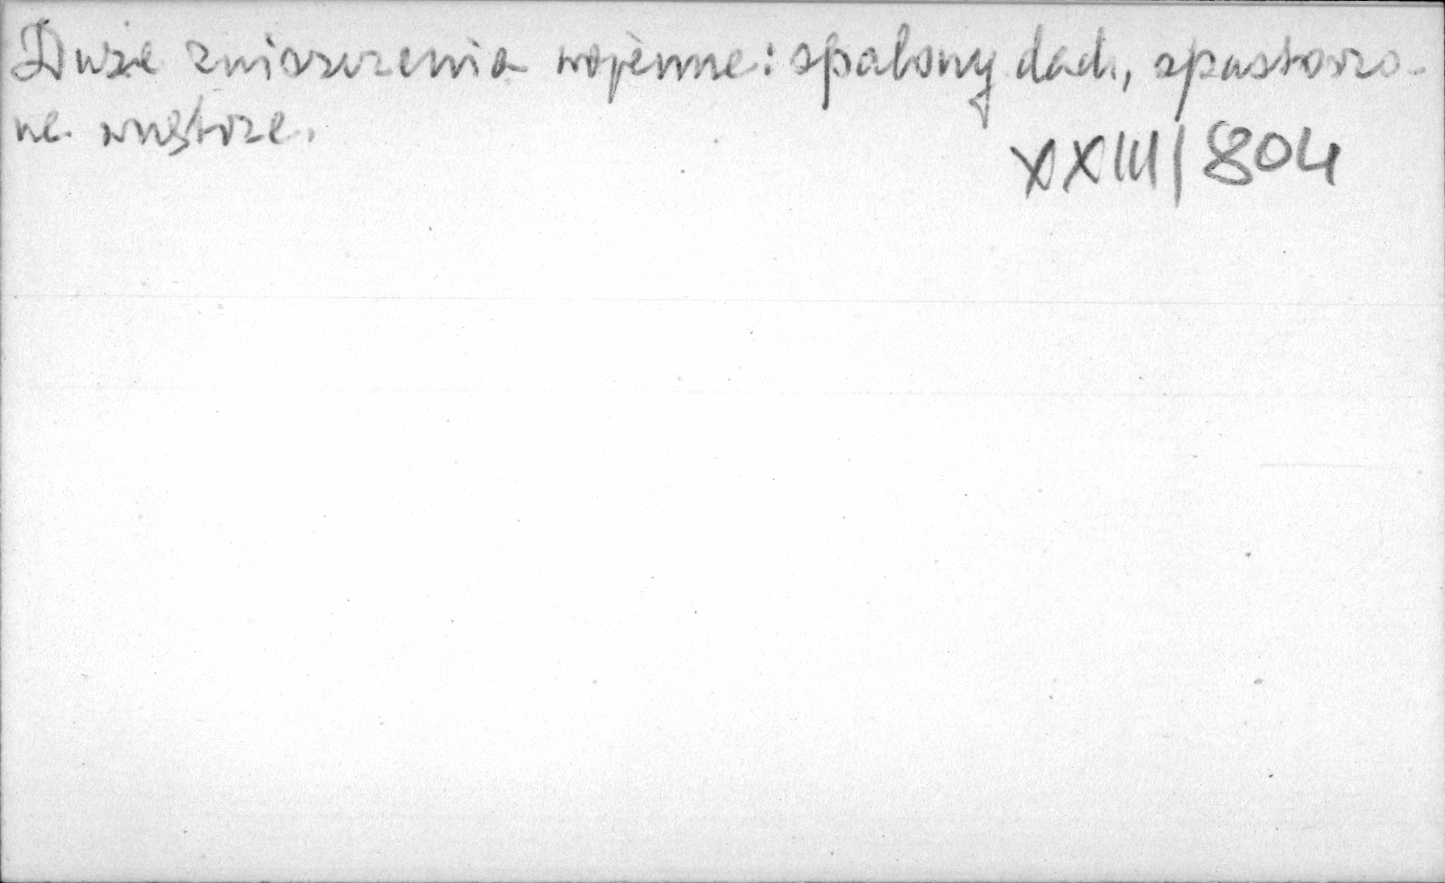 Duże zniszczenia wojenne: spalony dach, spustoszo-
ne wnętrze.
XXIII/804